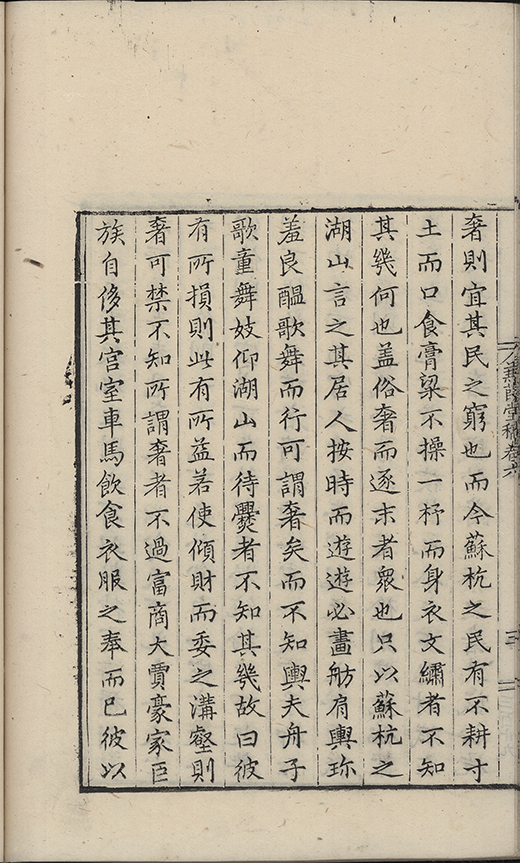 奢則宜其民之窮也而今蘇杭之民有不耕寸
土而口食膏粱不操一杼而身衣文繡者不知
其幾何也盖俗奢而逐末者衆也只以蘇杭之
湖山言之其居人按時而遊遊必畫舫肩輿珎
羞良醞歌舞而行可謂奢矣而不知輿夫舟子
歌童舞妓仰湖山而待爨者不知其幾故曰彼
有所損則此有所益若使傾財而委之溝壑則
奢可禁不知所謂奢者不過富商大賈豪家巨
族自侈其宮室車馬飲食衣服之奉而已彼以